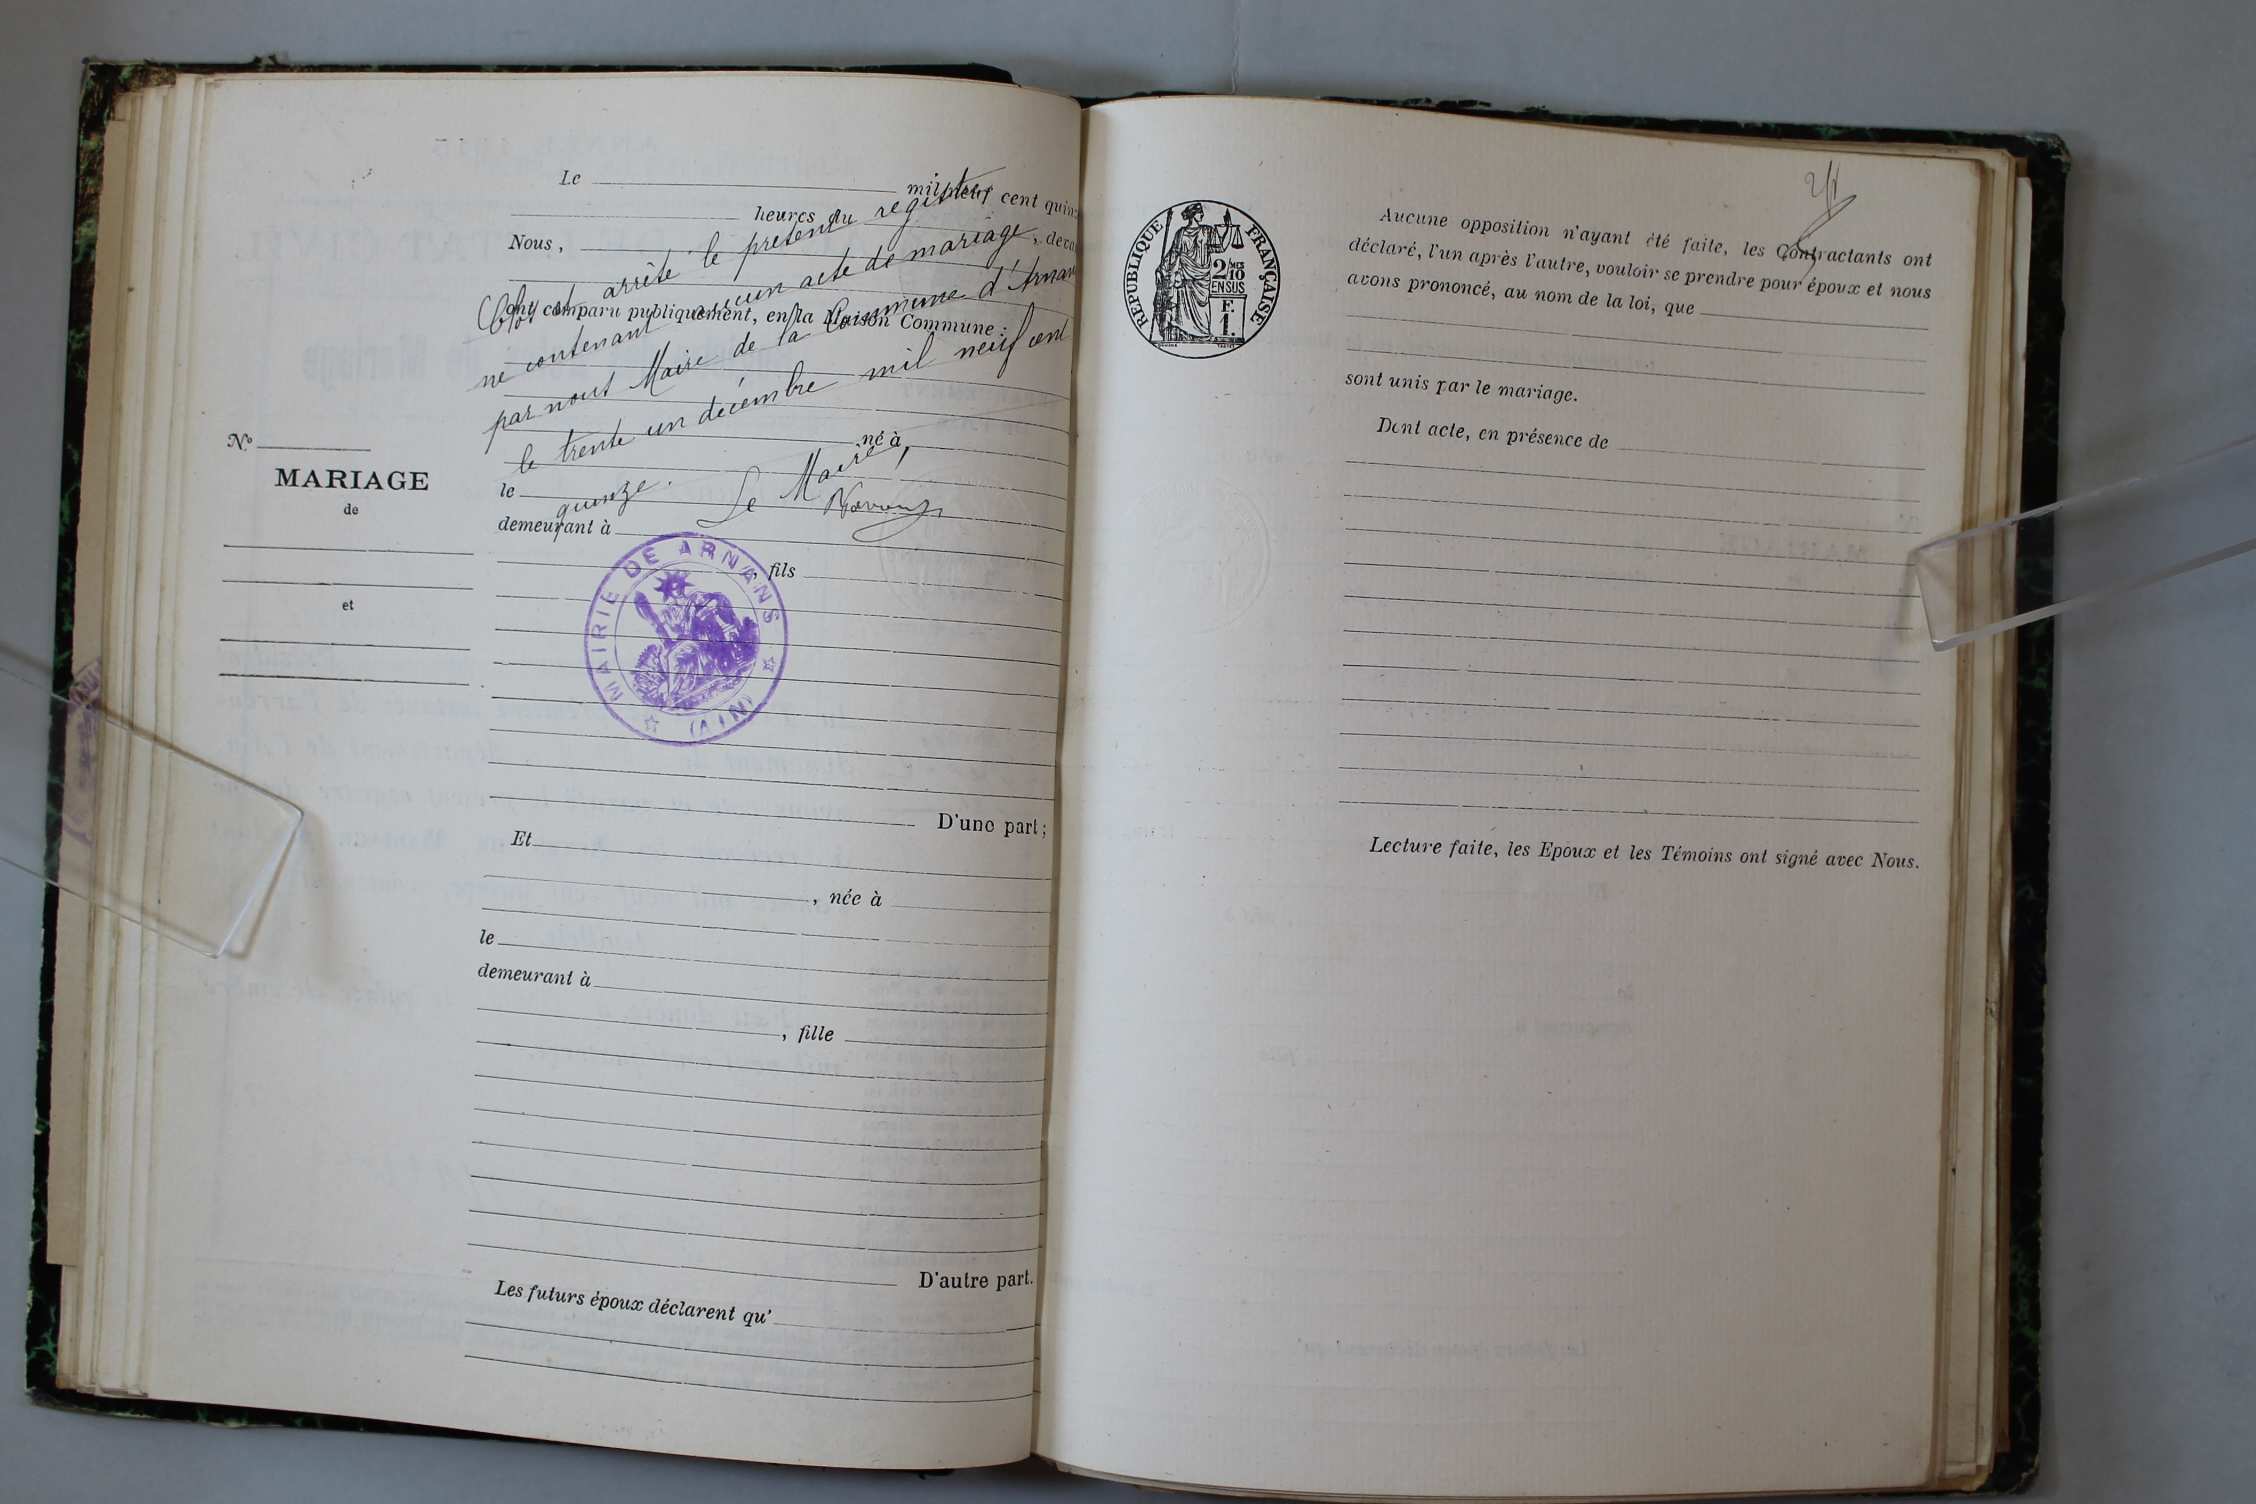 Le mil neuf cent quin
heures du
Nous, , deva
ont comparu publiquement, en la Maison Commune :
né à
le
demeurant à
, fils
D'une part ;
Et
, née à
le
demeurant à
, fille
D'autre part.
Les futurs époux déclarent qu'
Clos et arrêté le présent registre
ne contenant aucun acte de mariage,
par nous Maire de la Commune d'Arnans
le trente un décembre mil neuf cent
quinze.
Le Maire,
MAIRIE DE ARNANS
(AIN)
N.º
MARIAGE
de
et
RÉPUBLIQUE FRANÇAISE
2/MES
10
EN SUS
F.
1.
Aucune opposition n'ayant été faite, les Contractants ont
déclaré, l'un après l'autre, vouloir se prendre pour époux et nous
avons prononcé, au nom de la loi, que
sont unis par le mariage.
Dont acte, en présence de
Lecture faite, les Epoux et les Témoins ont signé avec Nous.